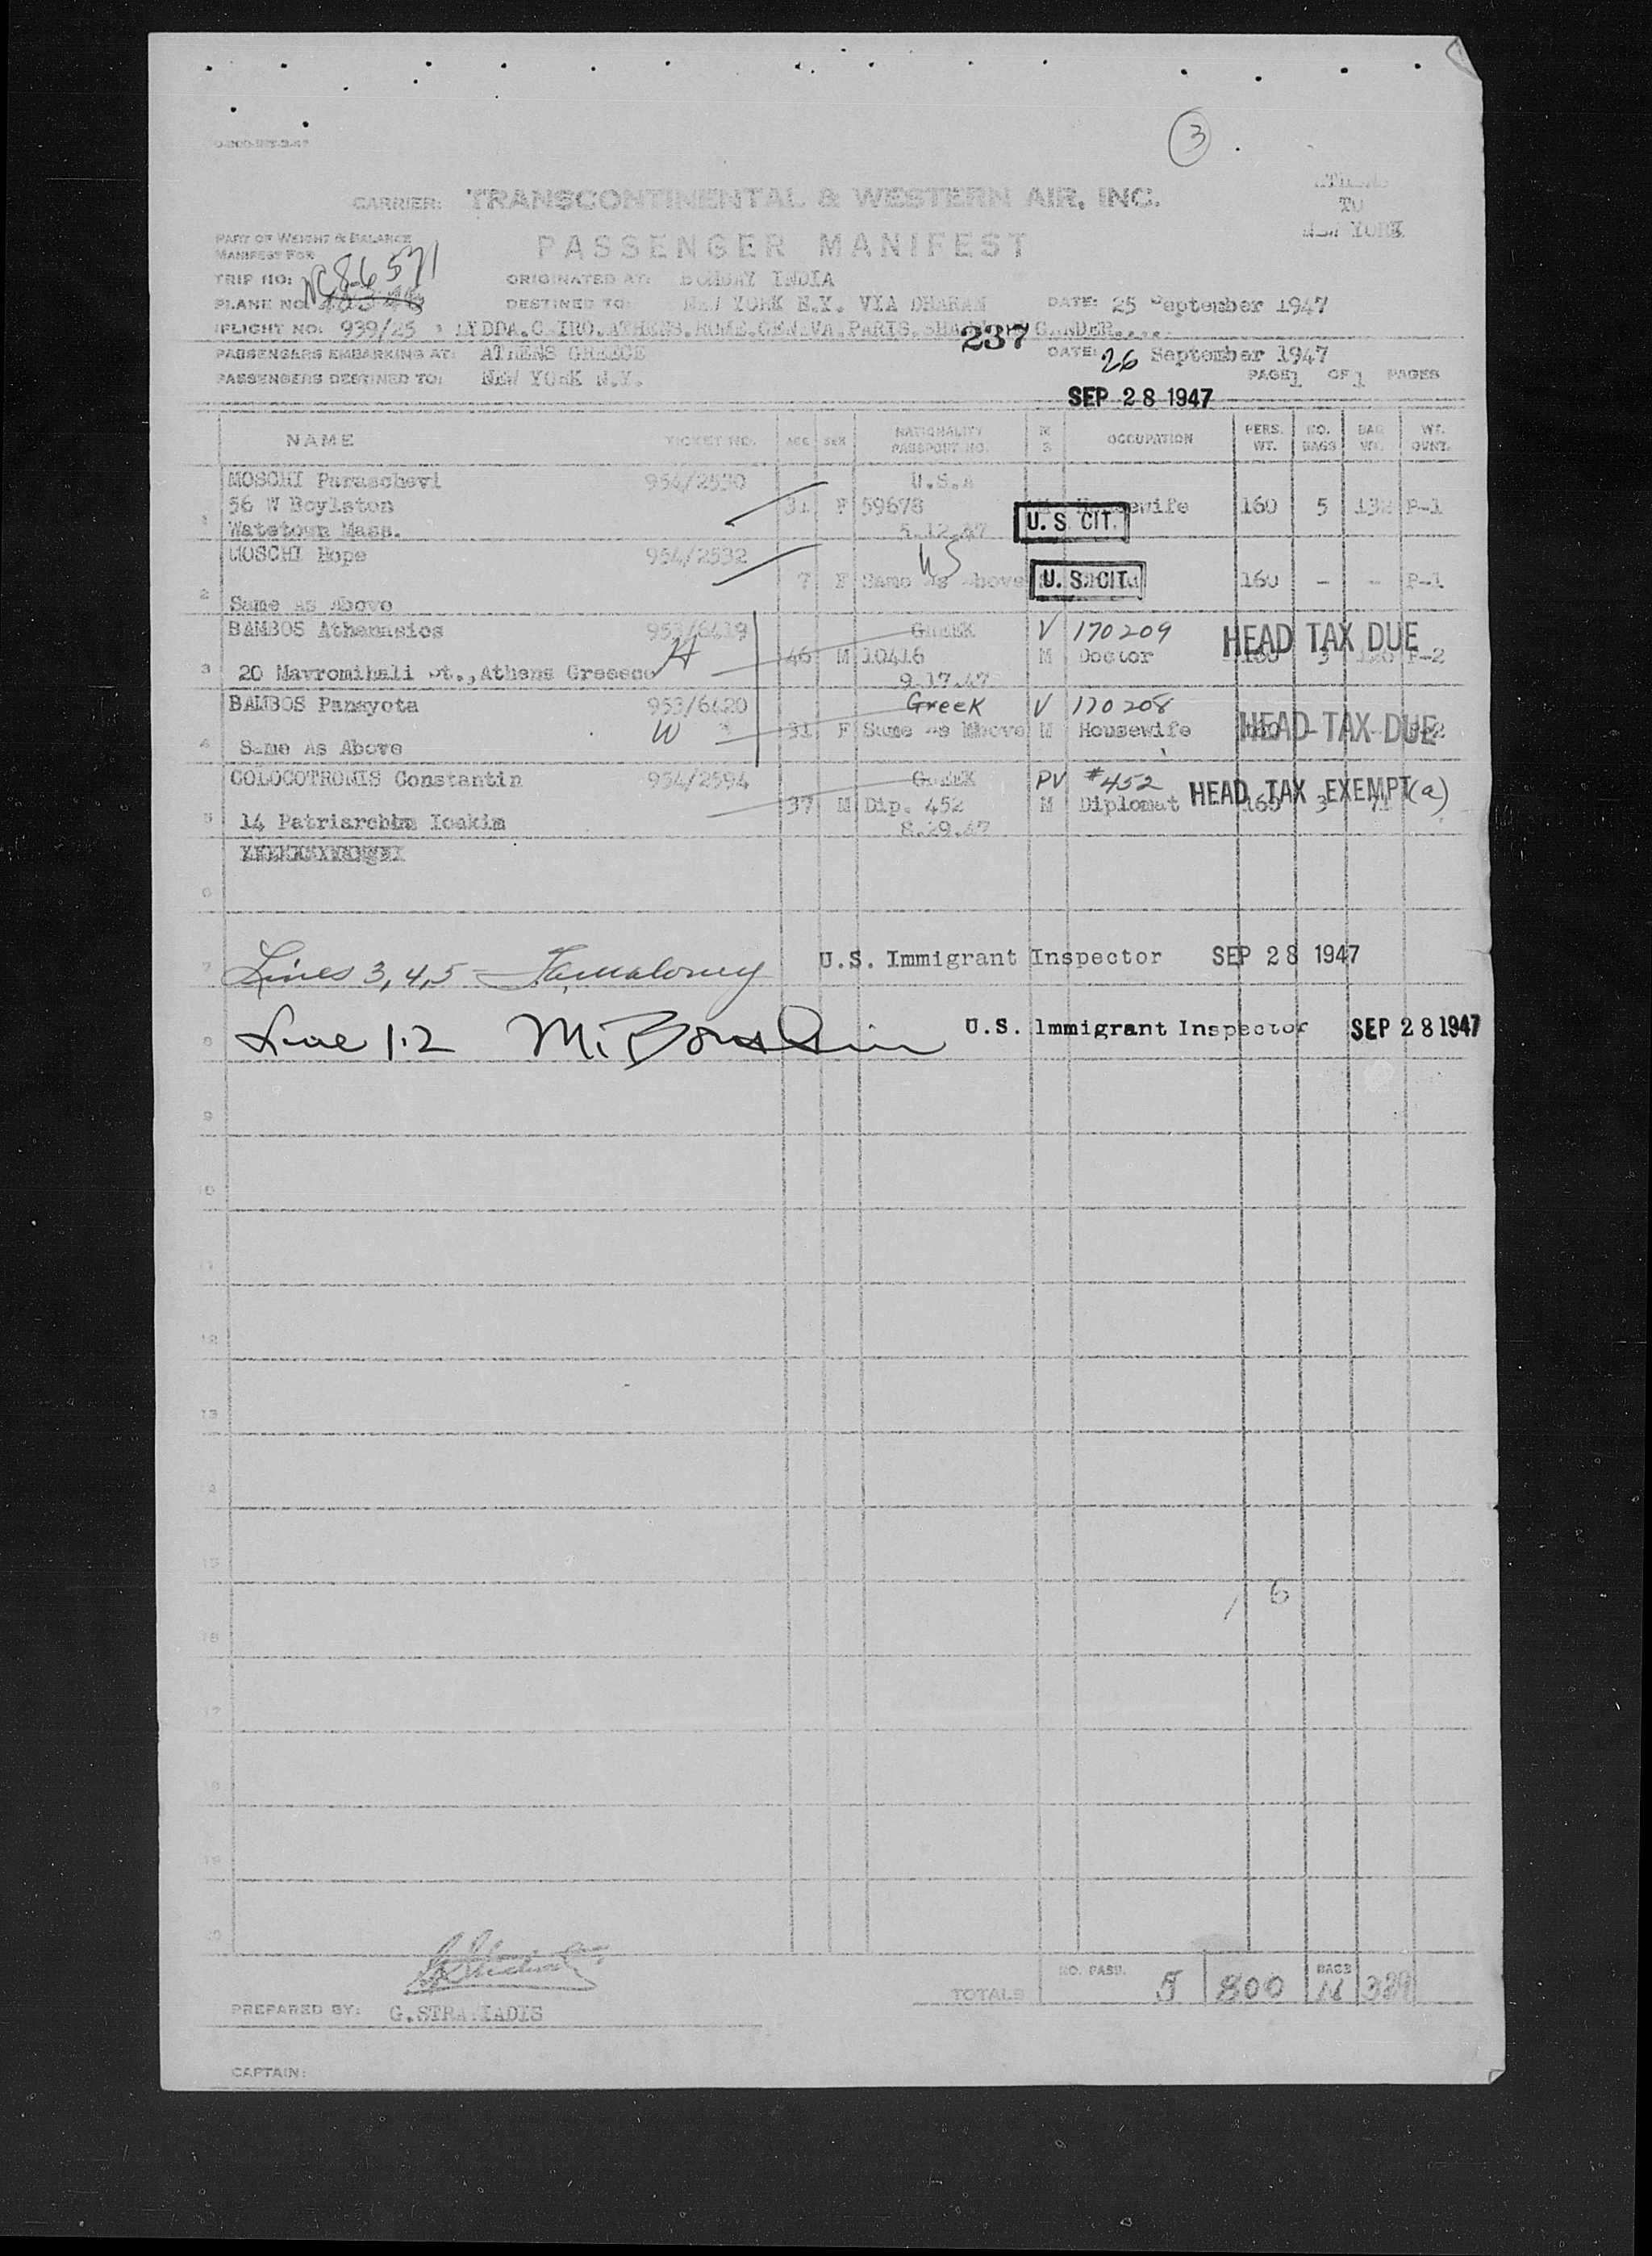 3
CARRIER: TRANSCONTINENTAL & WESTERN AIR, INC.
ATHENS
TO
NEW YORK
PART OF WEIGHT & BALANCE
MANIFEST FOR
PASSENGER MANIFEST
TRIP NO: NC86571
ORIGINATED AT: BOMBAY INDIA
PLANE NO:
DESTINED TO: NEW YORK N.Y. VIA DHARAN
DATE: 25 September 1947
FLIGHT NO: 939/25 LYDDA.CAIRO.ATHENS.ROME.GENEVA.PARIS. GANDER.....
237
PASSENGERS EMBARKING AT: ATHENS GREECE
DATE: 26 September 1947
PASSENGERS DESTINED TO: NEW YORK N.Y.
PAGE 1 OF 1 PAGES
SEP 28 1947
NAME TICKET NO. AGE SEX NATIONALITY PASSPORT NO. M S OCCUPATION PERS. WT. NO. BAGS BAG WT. WT. GUNT.
MOSCHI Paraschevi 954/2530 U.S.A
56 W Boylston 31 F 59678 U.S. CIT. Housewife 160 5 132 P-1
1 Watetown Mass. 5.12.47
MOSCHI Hope 954/2532 US
7 F Same As Above U.S. CIT. 160 - - P-1
2 Same As Above
BAMBOS Athanasios 953/6419 GREEK V 170209 HEAD TAX DUE
H 46 M 10416 M Doctor 3 P-2
3 20 Mavromihali St., Athens Greeece 9.17.47
BAMBOS Panayota 953/6420 Greek V 170208
W 31 F Same As Above M Housewife HEAD TAX DUE
4 Same As Above
COLOCOTRONIS Constantin 954/2594 GREEK PV #452
37 M Dip. 452 M Diplomat 165 3 HEAD TAX EXEMPT (a)
5 14 Patriarchim Ioakim 8.29.47
6
7 Lines 3,4,5 U.S. Immigrant Inspector SEP 28 1947
8 Line 1.2 U.S. Immigrant Inspector SEP 28 1947
9
10
11
12
13
14
15
6
16
17
18
19
20
NO. PASS. 5 800 BAGS
TOTALS
PREPARED BY:
CAPTAIN: